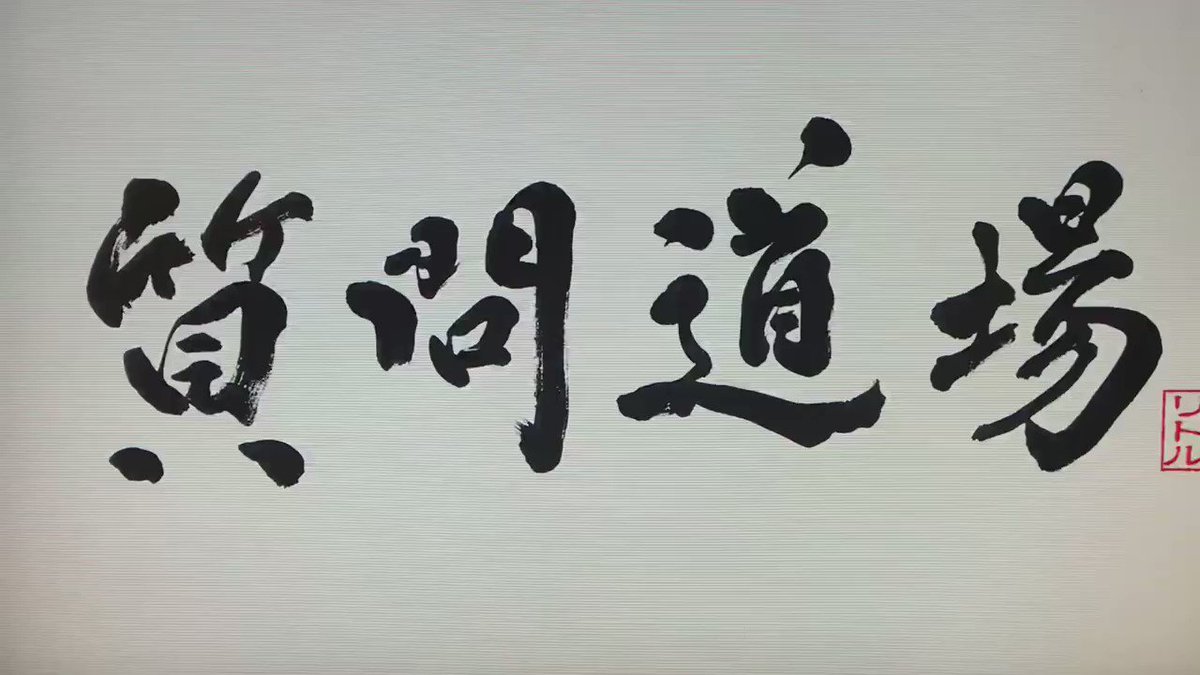 質問道場
リトル